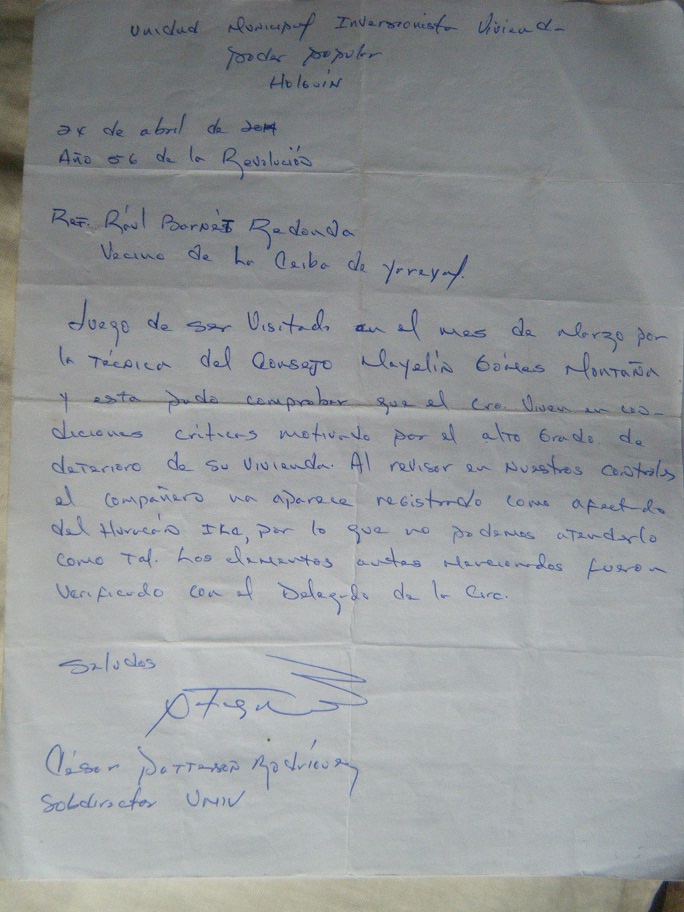 Unidad Municipal Inversionista Vivienda
poder popular
Holguín
24 de abril de 2014
Año 56 de la Revolución
Ref. Raúl Redonda
Vecino de La Ceiba de
Luego de ser Visitado en el mes de Marzo por
la Técnica del Consejo Mayelín Gómes Montaña
y esta pudo comprobar que el Cro. Viven en con-
diciones criticas motivado por el alto Grado de
deterioro de su Vivienda. Al revisar en Nuestros controles
el compañero no aparece registrado como afectado
del Huracán Ike, por lo que no podemos atenderlo
como Tal. Los elementos antes Mencionados fueron
Verificado con el Delegado de la Circ.
Saludos
César Patterson Rodríguez
Subdirector UMIV